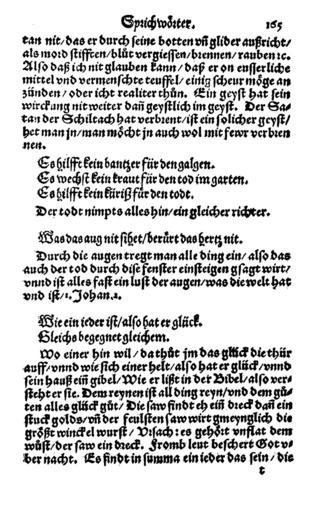 Sprichwörter. 165
tan nit/das er durch seine botten vn̄ glider außricht/
als mord stifften/blůt vergiessen/brennen/rauben ꝛc.
Also daß ich nit glauben kann/daß er on eusserliche
mittel vnd vermenschte teuffel/einig scheur möge an
zünden/oder icht realiter thůn. Ein geyst hat sein
wirckung nit weiter dan̄ geystlich im geyst. Der Sa-
tan der Schiltach hat verbrent/ist ein solicher geyst/
het man jn/man möcht jn auch wol mit fewr verbren
nen.
Es hilfft kein bantzer für den galgen.
Es wechst kein kraut für den tod im garten.
Es hilfft kein küriß für den todt.
Der todt nimpts alles hin/ein gleicher richter.
Was das aug nit sihet/berürt das hertz nit.
Durch die augen tregt man alle ding ein/also das
auch der tod durch dise fenster einsteigen gsagt wirt/
vnnd ist alles fast ein lust der augen/was die welt hat
vnd ist/1. Johan. 2.
Wie ein ieder ist/also hat er glück.
Gleichs begegnet gleichem.
Wo einer hin wil/da thůt jm das glück die thür
auff/vnnd wie sich einer helt/also hat er glück/vnnd
sein hauß ein gibel/Wie er lißt in der Bibel/also ver-
steht er sie. Dem reynen ist all ding reyn/vnd dem gů-
ten alles glück gůt/Die saw findt eh ein̄ dreck dan̄ ein
stuck golds/vn̄ der feulsten saw wirt gmeynglich die
größt winckel wurst/Vrsach: es gehört vnflat dem
wüst/der saw ein dreck. Fromb leut beschert Got v-
ber nacht. Es findt in summa ein ieder das sein/die
t